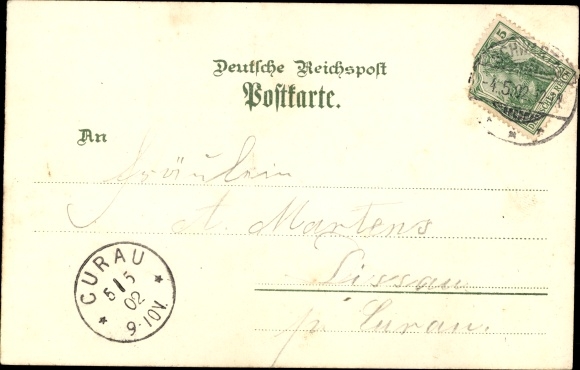 Deutsche Reichspost
Postkarte.
An
Fräulein
A. Martens
Lissau
p. Curau.
5
4.5.02
CURAU
5/5
02
9-10V.